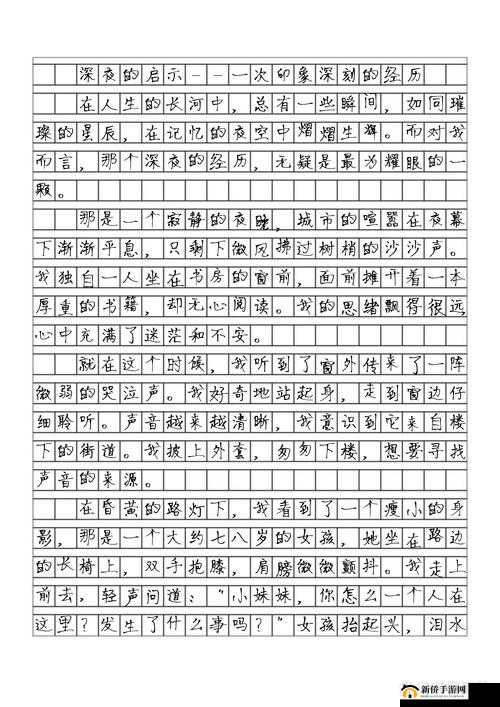 深夜的启示--一次印象深刻的经历
在人生的长河中，总有一些瞬间，如同璀
璨的星辰，在记忆的夜空中熠熠生辉。而对我
而言，那个深夜的经历，无疑是最为耀眼的一
颗。
那是一个寂静的夜晚，城市的喧嚣在夜幕
下渐渐平息，只剩下微风拂过树梢的沙沙声。
我独自一人坐在书房的窗前，面前摊开着一本
厚重的书籍，却无心阅读。我的思绪飘得很远
心中充满了迷茫和不安。
就在这个时候，我听到了窗外传来了一阵
微弱的哭泣声。我好奇地站起身，走到窗边仔
细聆听。声音越来越清晰，我意识到它来自楼
下的街道。我披上外套，匆匆下楼，想要寻找
声音的来源。
在昏黄的路灯下，我看到了一个瘦小的身
影，那是一个大约七八岁的女孩，她坐在路边
的长椅上，双手抱膝，肩膀微微颤抖。我走上
前去，轻声问道：“小妹妹，你怎么一个人在
这里？发生了什么事吗？”女孩抬起兴，泪水
新侨手游网